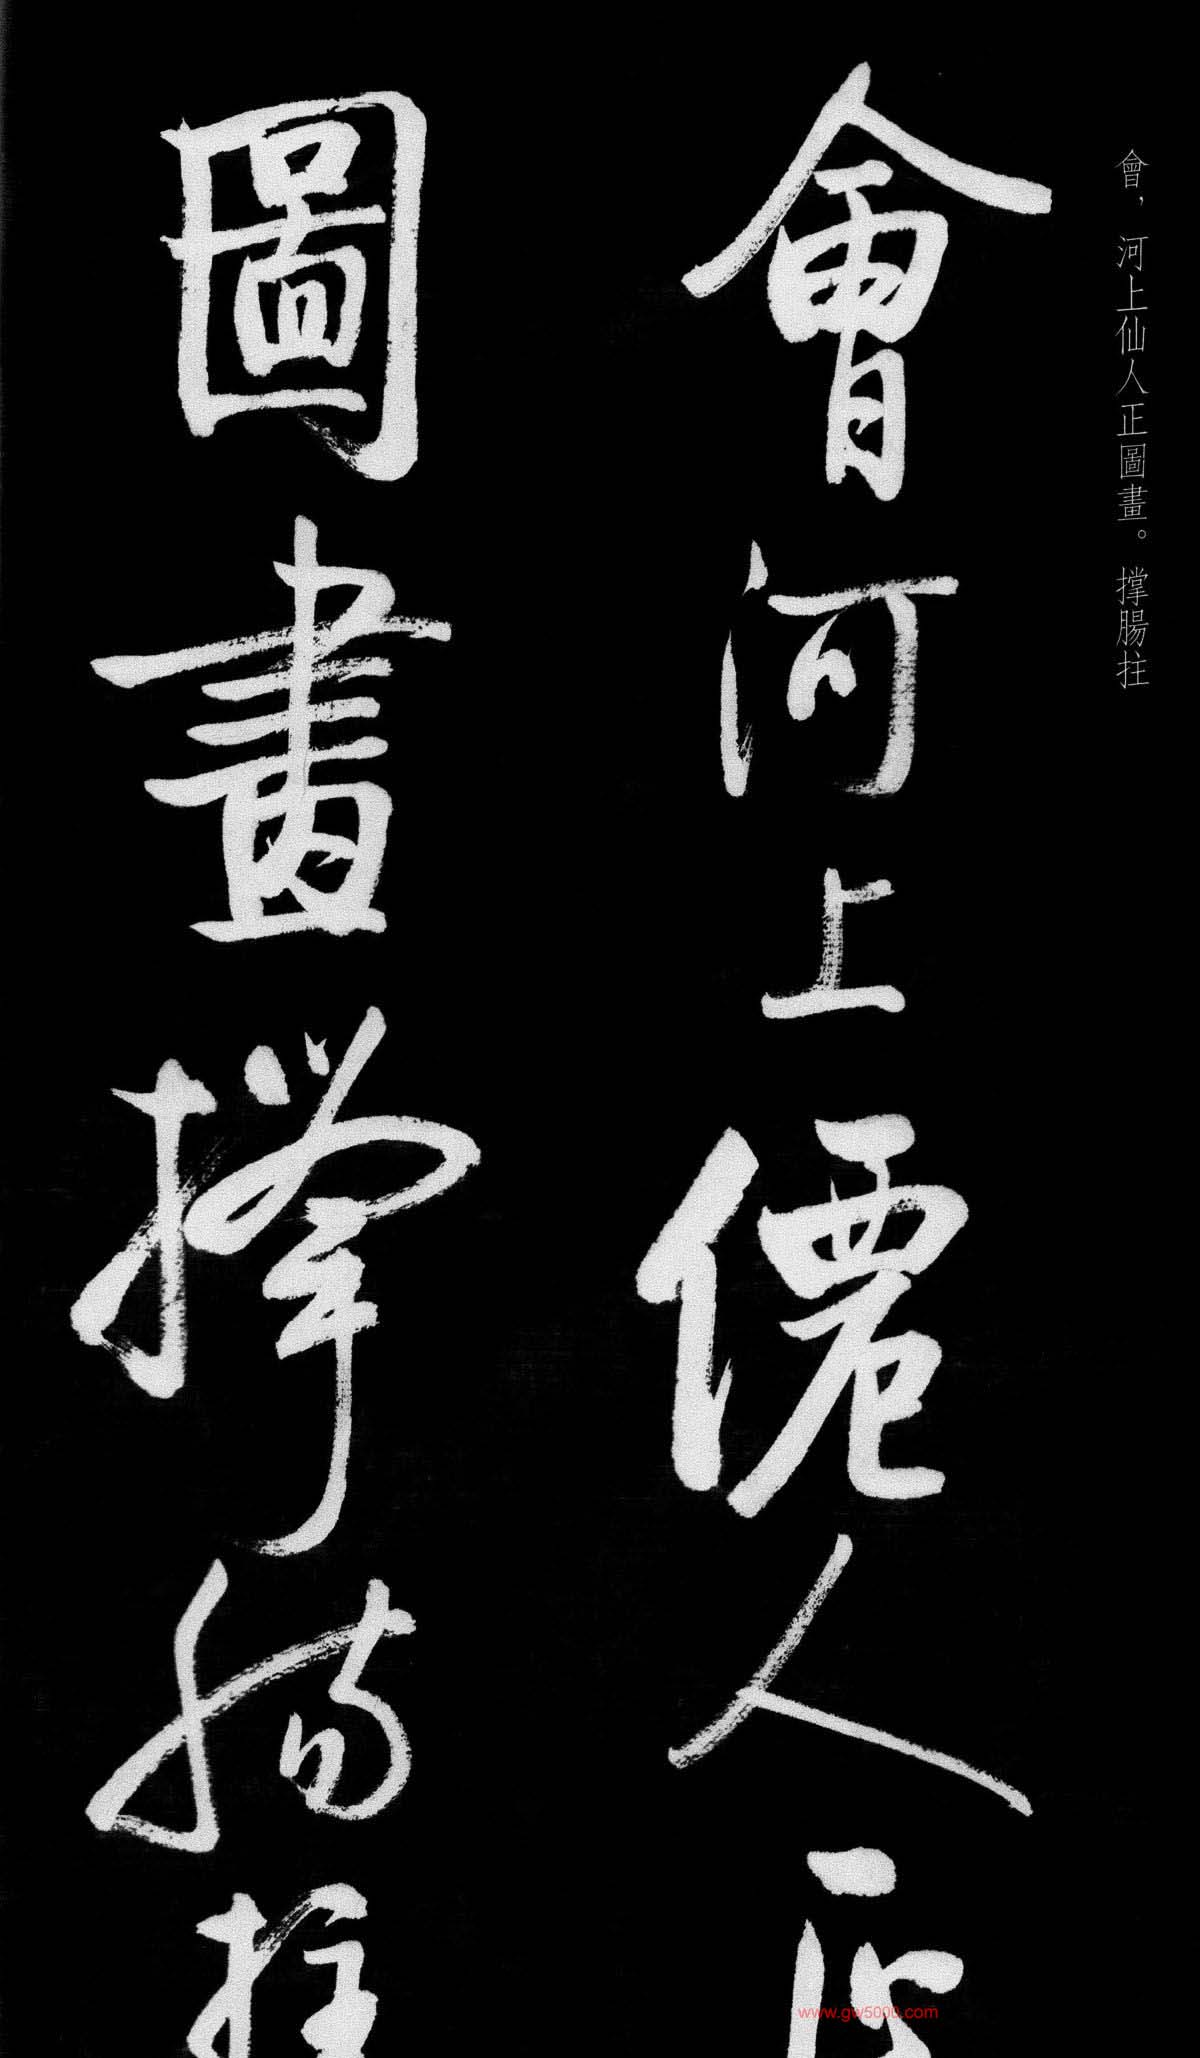 會，河上仙人正圖畫。撐腸拄
會河上僊人正
圖畫撐腸拄
www.gw5000.com